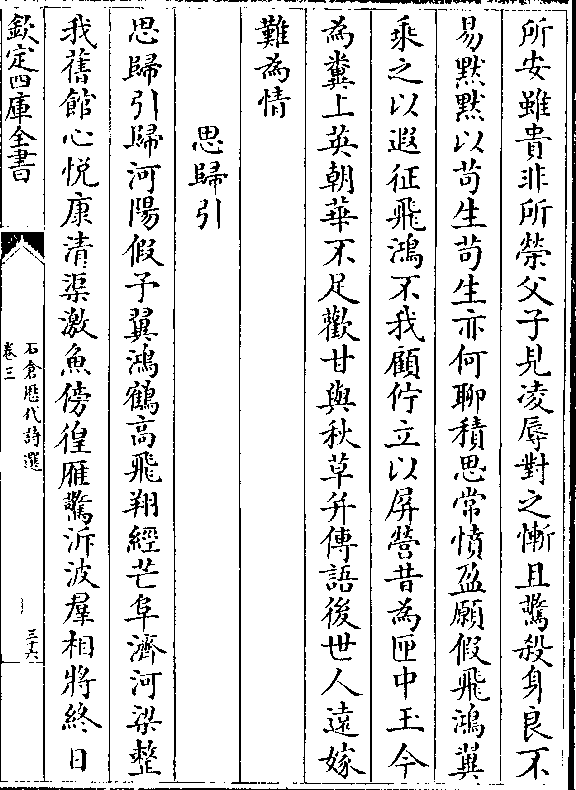 所安雖貴非所榮父子見凌辱對之慚且驚殺身良不
易黙黙以苟生苟生亦何聊積思常憤盈願假飛鴻翼
乘之以遐征飛鴻不我顧佇立以屏營昔為匣中玉今
為糞上英朝華不足歡甘與秋草并傳語後世人遠嫁
難為情
思歸引
思歸引歸河陽假予翼鴻鶴高飛翔經芒阜濟河梁整
我舊館心悦康清渠激魚傍徨雁驚泝波羣相將終日
欽定四庫全書
石倉歷代詩選
卷三
三六